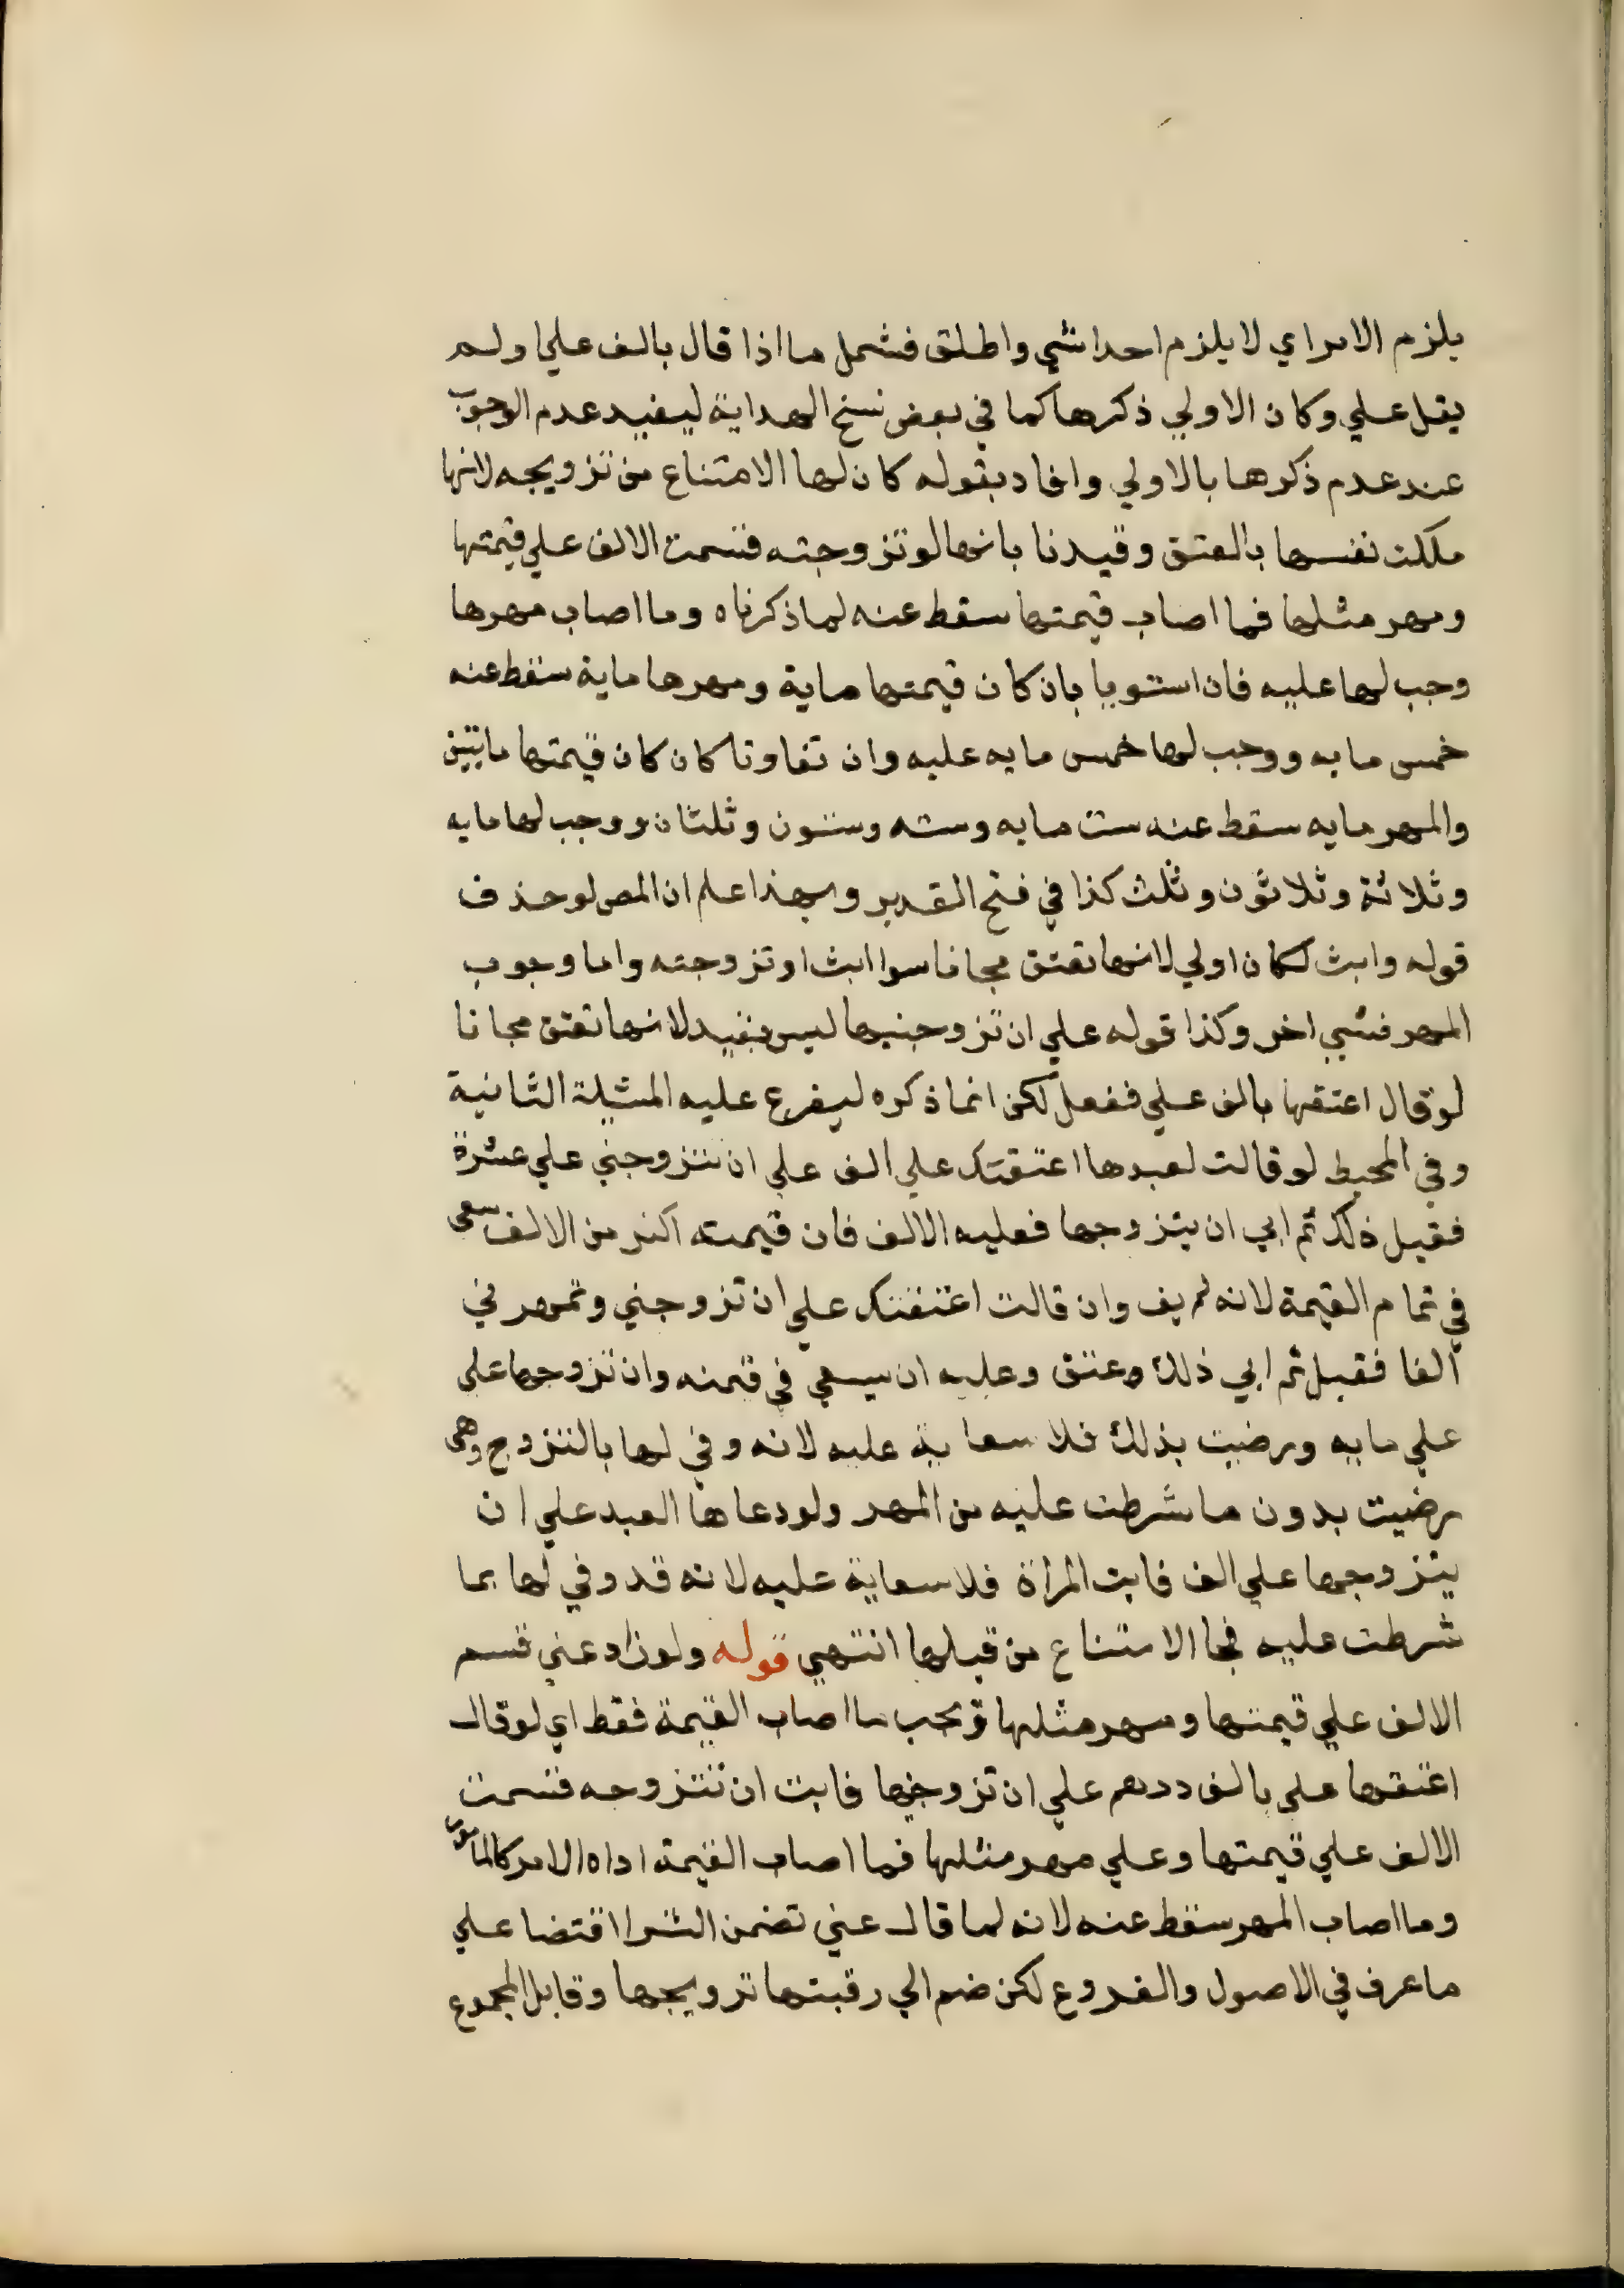 يلزم الامر اي لا يلزم احدا شي واطلق فشمل ما اذا قال بالف علي او لم
يقل علي وكان الاولي ذكرها كما في بعض نسخ الهداية ليفيد عدم الوجوب
عند عدم ذكرها بالاولي وافاد بقوله كان لها الامتناع من تزويجه لانها
ملكت نفسها بالعتق وقيدنا بانها لو تزوجته قسمت الالف علي قيمتها
ومهر مثلها فما اصاب قيمتها سقط عنه لما ذكرناه وما اصاب مهرها
وجب لها عليه فان استويا بان كان قيمتها ماية ومهرها ماية سقط عنه
خمس مايه ووجب لها خمس مايه عليه وان تفاوتا كان كان قيمتها مايتين
والمهر مايه سقط عنه ست مايه وسته وستون وثلثان ووجب لها مايه
وثلاثة وثلاثون وثلث كذا في فتح القدير وبهذا علم ان المص لو حذف
قوله وابت لكان اولي لانها تعتق مجانا سوا ابت او تزوجته واما وجوب
المهر فشي اخر وكذا قوله علي ان تزوجنيها ليس بقيد لانها تعتق مجانا
لو قال اعتقها بالف علي ففعل لكن انما ذكره ليفرع عليه المثيلة الثانية
وفي المحيط لو قالت لعبدها اعتقتك علي الف علي ان تتزوجني علي عشرة
فقبل ذلك ثم ابي ان يتزوجها فعليه الالف فان قيمته اكثر من الالف سعي
في تمام القيمة لانه لم يف وان قالت اعتقتك علي ان تزوجني وتمهرني
الفا فقبل ثم ابي ذلك وعتق وعليه ان يسعي في قيمته وان تزوجها علي
علي مايه ورضيت بذلك فلا سعاية عليه لانه وفي لها بالتزوج وهي
رضيت بدون ما شرطت عليه من المهر ولو دعاها العبد علي ان
يتزوجها علي الف فابت المراة فلا سعاية عليه لانه قد وفي لها بما
شرطت عليه فجا الامتناع من قبلها انتهي قوله ولو زاد عني قسم
الالف علي قيمتها ومهر مثلها ويجب ما اصاب القيمة فقط اي لو قال
اعتقها علي بالف درهم علي ان تزوجنيها فابت ان تتزوجه قسمت
الالف علي قيمتها وعلي مهر مثلها فما اصاب القيمة اداه الامر كالمامور
وما اصاب المهر سقط عنه لانه لما قال عني تضمن الشرا اقتضا علي
ما عرف في الاصول والفروع لكن ضم الي رقبتها تزويجها وقابل المجموع